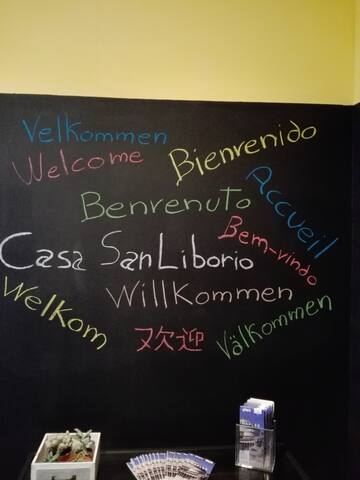 Velkommen
Welcome
Bienvenido
Benvenuto
Accueil
Bem-vindo
Casa San Liborio
Willkommen
Welkom
欢迎
Välkommen